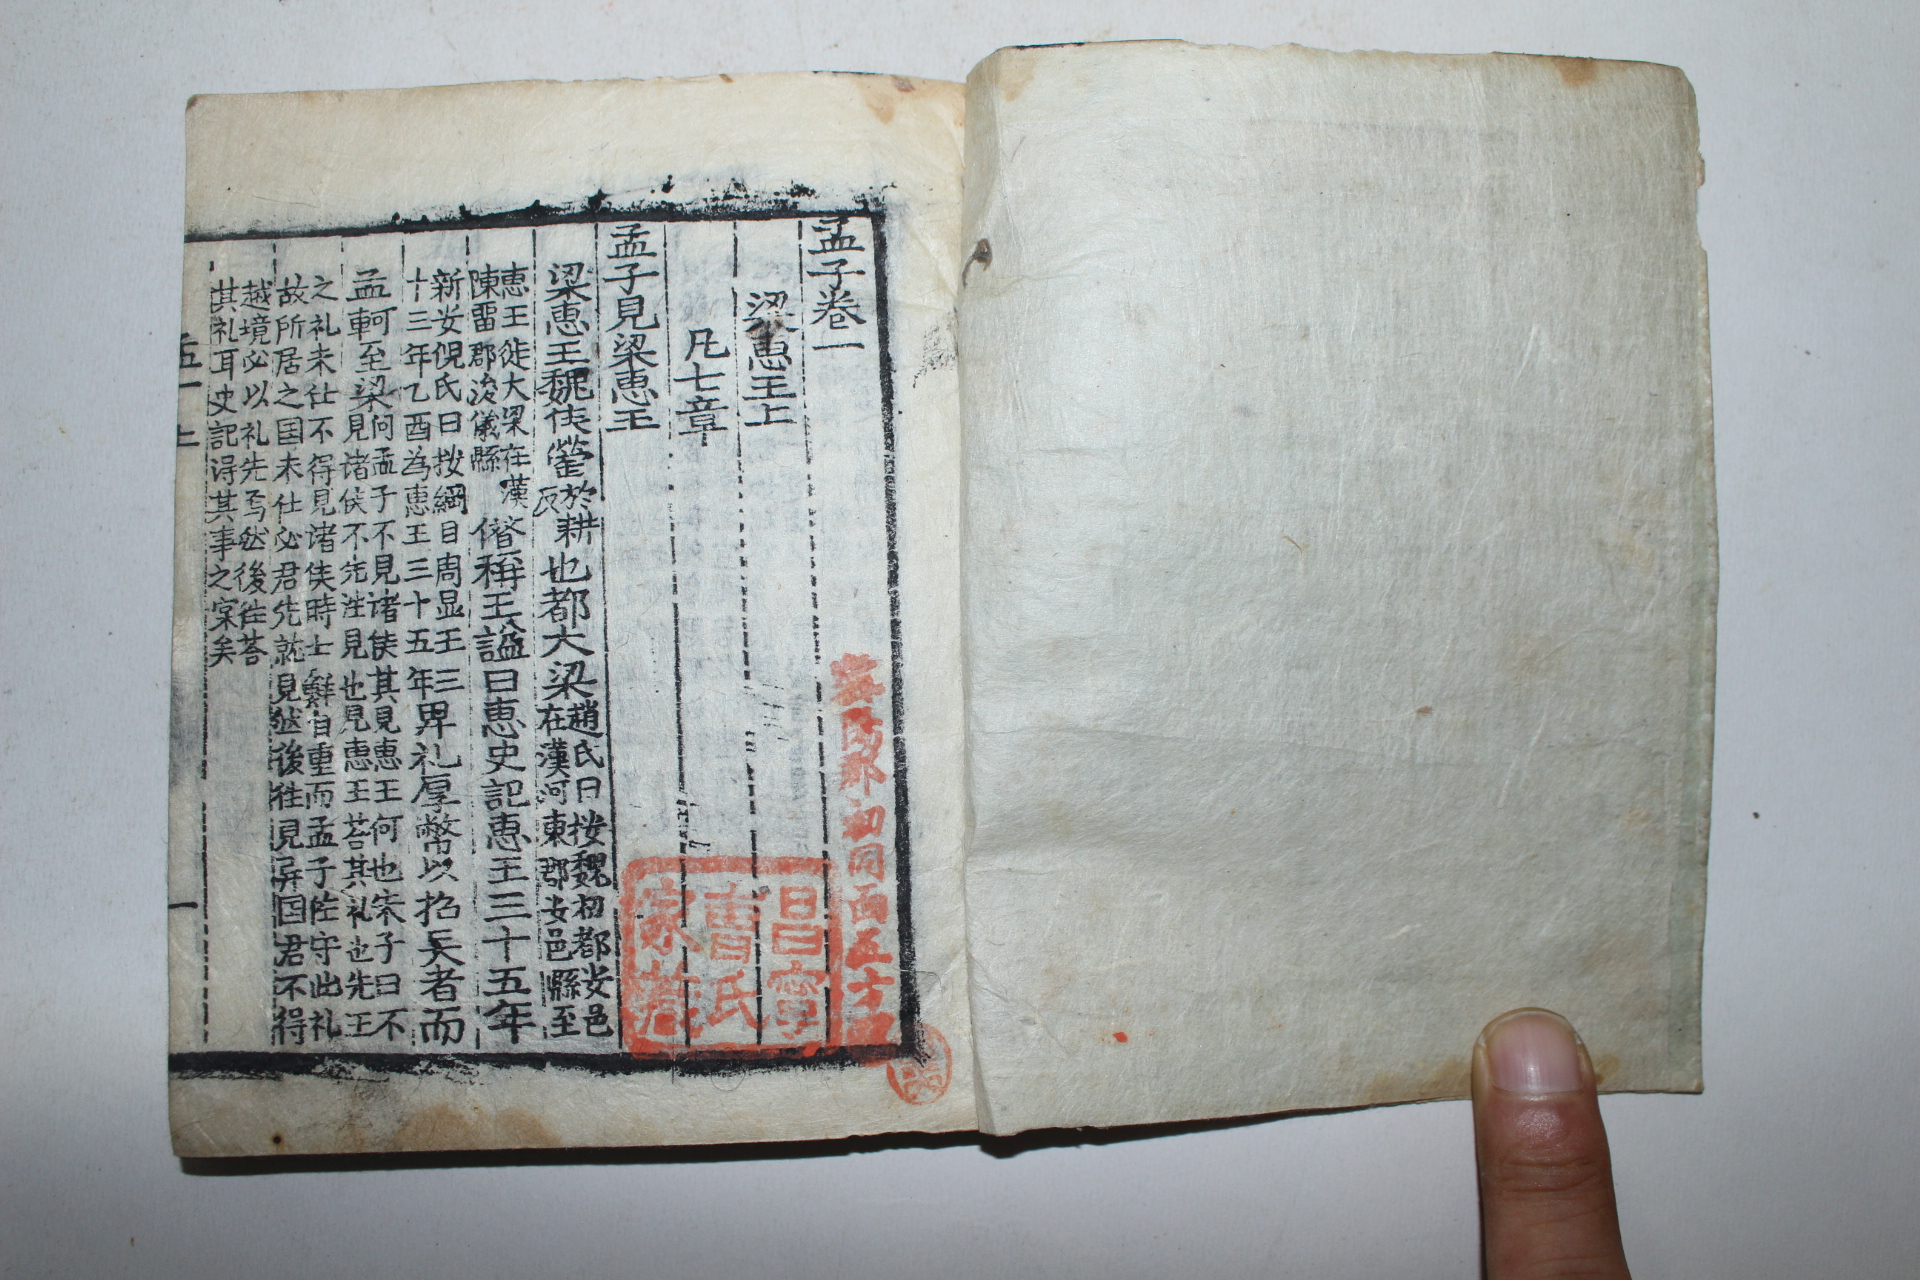 孟子卷一
梁恵王上
凡七章
孟子見梁恵王
梁恵王魏侯罃於耕反也都大梁趙氏曰按魏初都安邑在漢河東郡安邑縣至
恵王徙大梁在漢陳畱郡浚儀縣僣稱王謚曰恵史記恵王三十五年
新安倪氏曰按綱目周显王三十三年乙酉為恵王三十五年卑礼厚幣以招賢者而
孟軻至梁問孟子不見诸侯其見恵王何也朱子曰不見诸侯不先往見也見恵王荅其礼也先王
之礼未仕不得見诸侯時士鲜自重而孟子笁守此礼故所居之国未仕必君先就見然後往見异国君不得
越境必以礼先焉然後往荅其礼耳史記得其事之実矣
孟一上
一
務安郡初同面五十四
昌寧曹氏家藏